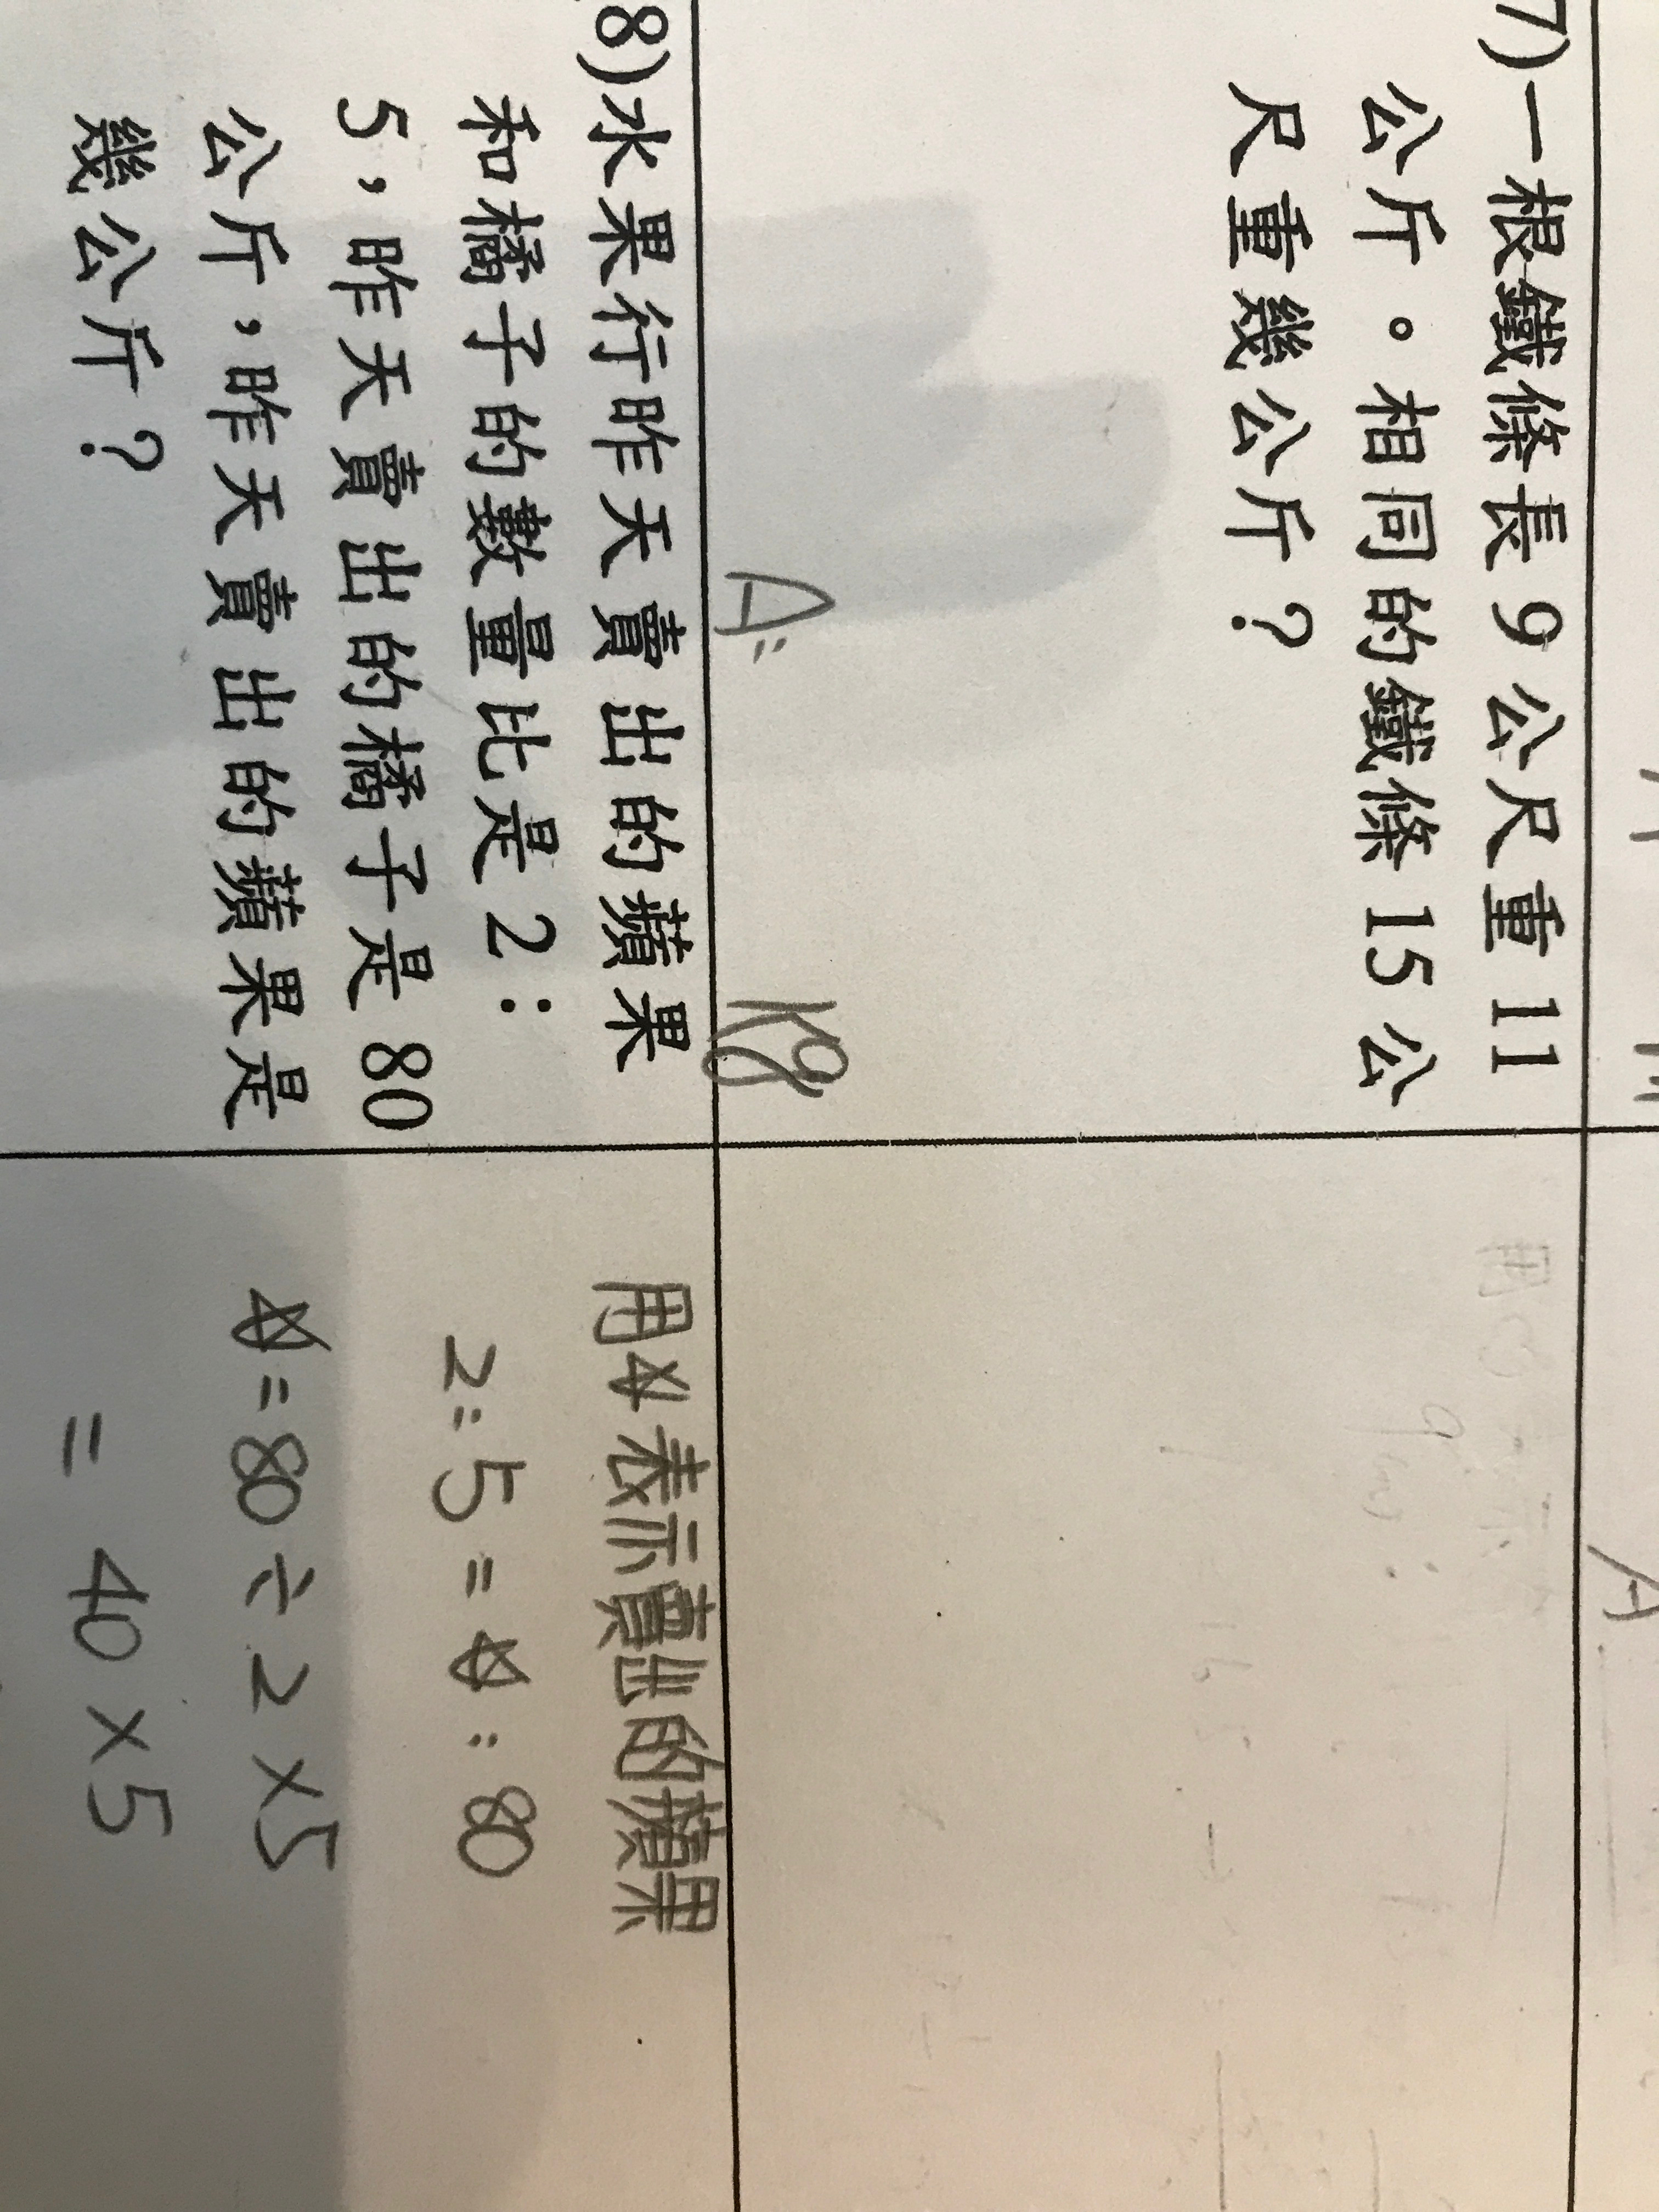 7)一根鐵條長 9 公尺重 11
公斤。相同的鐵條 15 公
尺重幾公斤？
A:
8)水果行昨天賣出的蘋果
和橘子的數量比是 2：
5，昨天賣出的橘子是 80
公斤，昨天賣出的蘋果是
幾公斤？
用☆表示賣出的蘋果
2:5=☆:80
☆=80÷2×5
=40×5
A